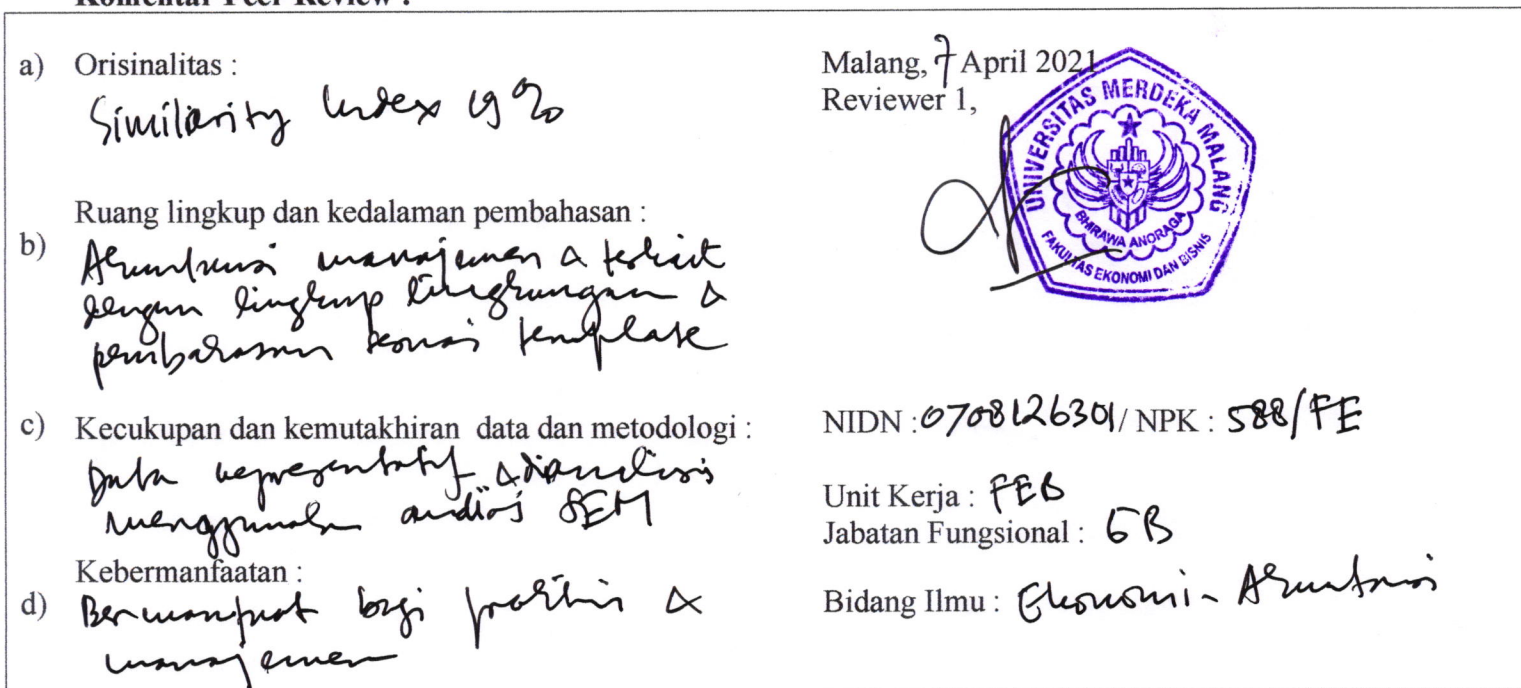 Komentar Peer Review :
a) Orisinalitas :
Similarity Index 19%
Ruang lingkup dan kedalaman pembahasan :
b) Akuntansi manajemen & terkait
dengan lingkup lingkungan &
pembahasan sesuai template
c) Kecukupan dan kemutakhiran data dan metodologi :
Data representatif & dianalisis
menggunakan analisis SEM
Kebermanfaatan :
d) Bermanfaat bagi praktisi &
manajemen
Malang, 7 April 2021
Reviewer 1,
UNIVERSITAS MERDEKA MALANG
BHIRAWA ANORAGA
FAKULTAS EKONOMI DAN BISNIS
NIDN : 0708126301/ NPK : 588/FE
Unit Kerja : FEB
Jabatan Fungsional : GB
Bidang Ilmu : Ekonomi - Akuntansi